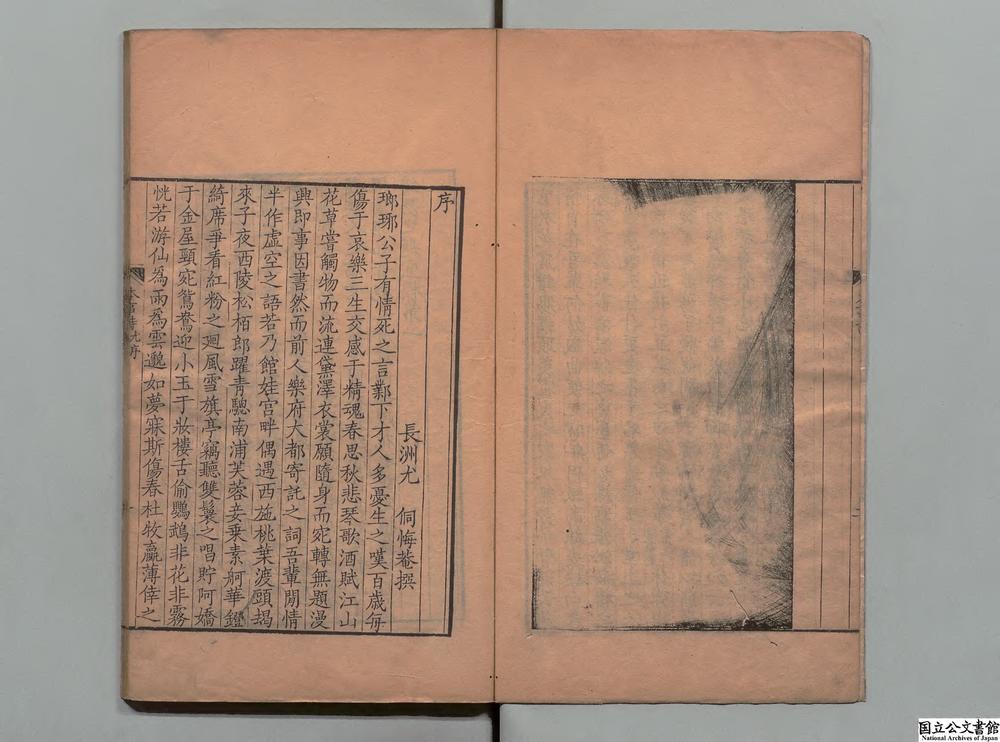 序
長洲尤 侗悔菴撰
瑯琊公子有情死之言鄴下才人多憂生之嘆百歲每
傷于哀樂三生交感于精魂春思秋悲琴歌酒賦江山
花草嘗觸物而流連黛澤衣裳願隨身而宛轉無題漫
興即事因書然而前人樂府大都寄託之詞吾輩閒情
半作虛空之語若乃館娃宮畔偶遇西施桃葉渡頭朅
來子夜西陵松栢郎躍青驄南浦芙蓉妾乗素舸華鐙
綺席爭看紅粉之廻風雪旗亭竊聽雙鬟之唱貯阿嬌
于金屋頸宛鴛鴦迎小玉于妝樓舌偷鸚鵡非花非霧
恍若游仙爲雨爲雲邈如夢寐斯傷春杜牧贏薄倖之
国立公文書館
National Archives of Japan